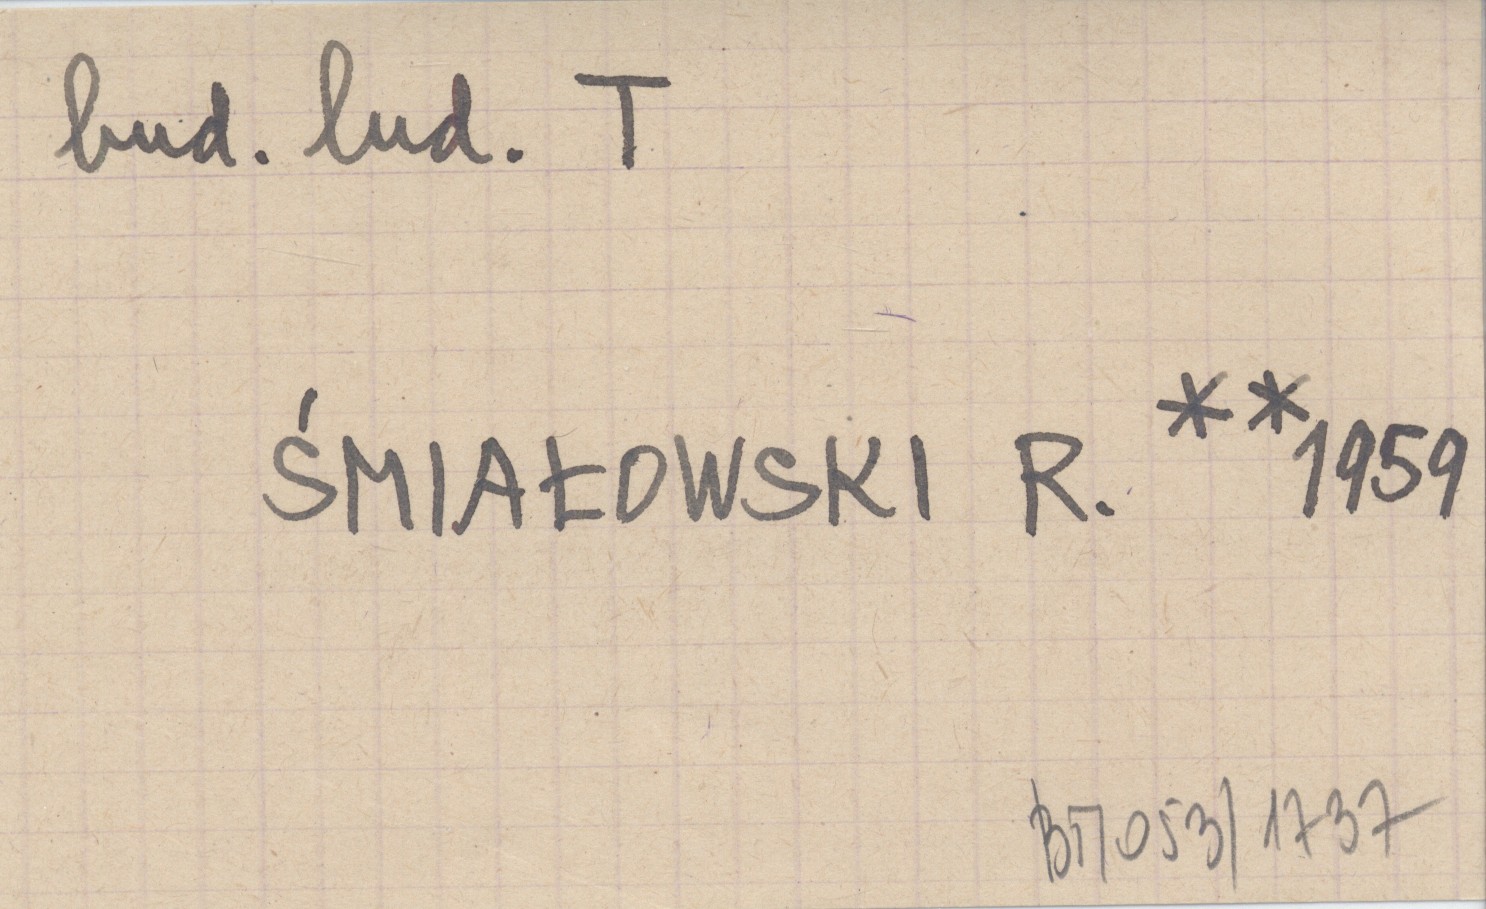 bud. lud. T
ŚMIAŁOWSKI R. **1959
BT/053/1737